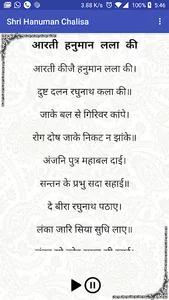 3.88 K/s 5:46
Shri Hanuman Chalisa
आरती हनुमान लला की
आरती कीजै हनुमान लला की।
दुष्ट दलन रघुनाथ कला की॥
जाके बल से गिरिवर कांपे।
रोग दोष जाके निकट न झांके॥
अंजनि पुत्र महाबल दाई।
सन्तन के प्रभु सदा सहाई॥
दे बीरा रघुनाथ पठाए।
लंका जारि सिया सुधि लाए॥